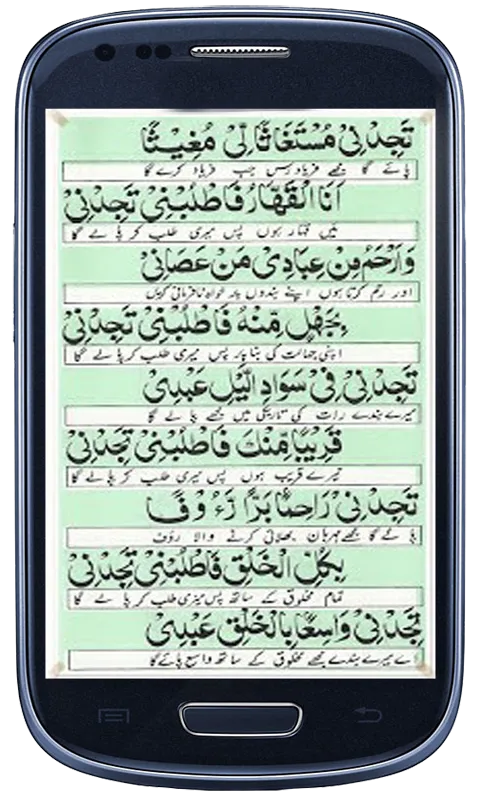 تَجِدْنِیْ مُسْتَغَاثًا لِّیْ مُغِیْثًا
پائے گا مجھے فریادرس جب فریاد کرے گا
اَنَا الْقَهَّارُ فَاطْلُبْنِیْ تَجِدْنِیْ
میں قہار ہوں پس میری طلب کر پا لے گا
وَاَرْحَمُ مِنْ عِبَادِیْ مَنْ عَصَانِیْ
اور رحم کرتا ہوں اپنے بندوں پر خواہ نافرمانی کریں
بِجَهْلٍ مِّنْهُ فَاطْلُبْنِیْ تَجِدْنِیْ
اپنی جہالت کی بنا پر پس میری طلب کر پا لے گا
تَجِدْنِیْ فِیْ سَوَادِ الَّیْلِ عَبْدِیْ
میرے بندے رات کی تاریکی میں مجھے پا لے گا
قَرِیْبًا مِّنْكَ فَاطْلُبْنِیْ تَجِدْنِیْ
تیرے قریب ہوں پس میری طلب کر پا لے گا
تَجِدْنِیْ رَاحِمًا بَرًّا رَءُوْفًا
پا لے گا مجھے مہربان بھلائی کرنے والا رؤف
بِكُلِّ الْخَلْقِ فَاطْلُبْنِیْ تَجِدْنِیْ
تمام مخلوق کے ساتھ پس میری طلب کر پا لے گا
تَجِدْنِیْ وَاسِعًا بِالْخَلْقِ عَبْدِیْ
اے میرے بندے مجھے مخلوق کے ساتھ واسع پائے گا